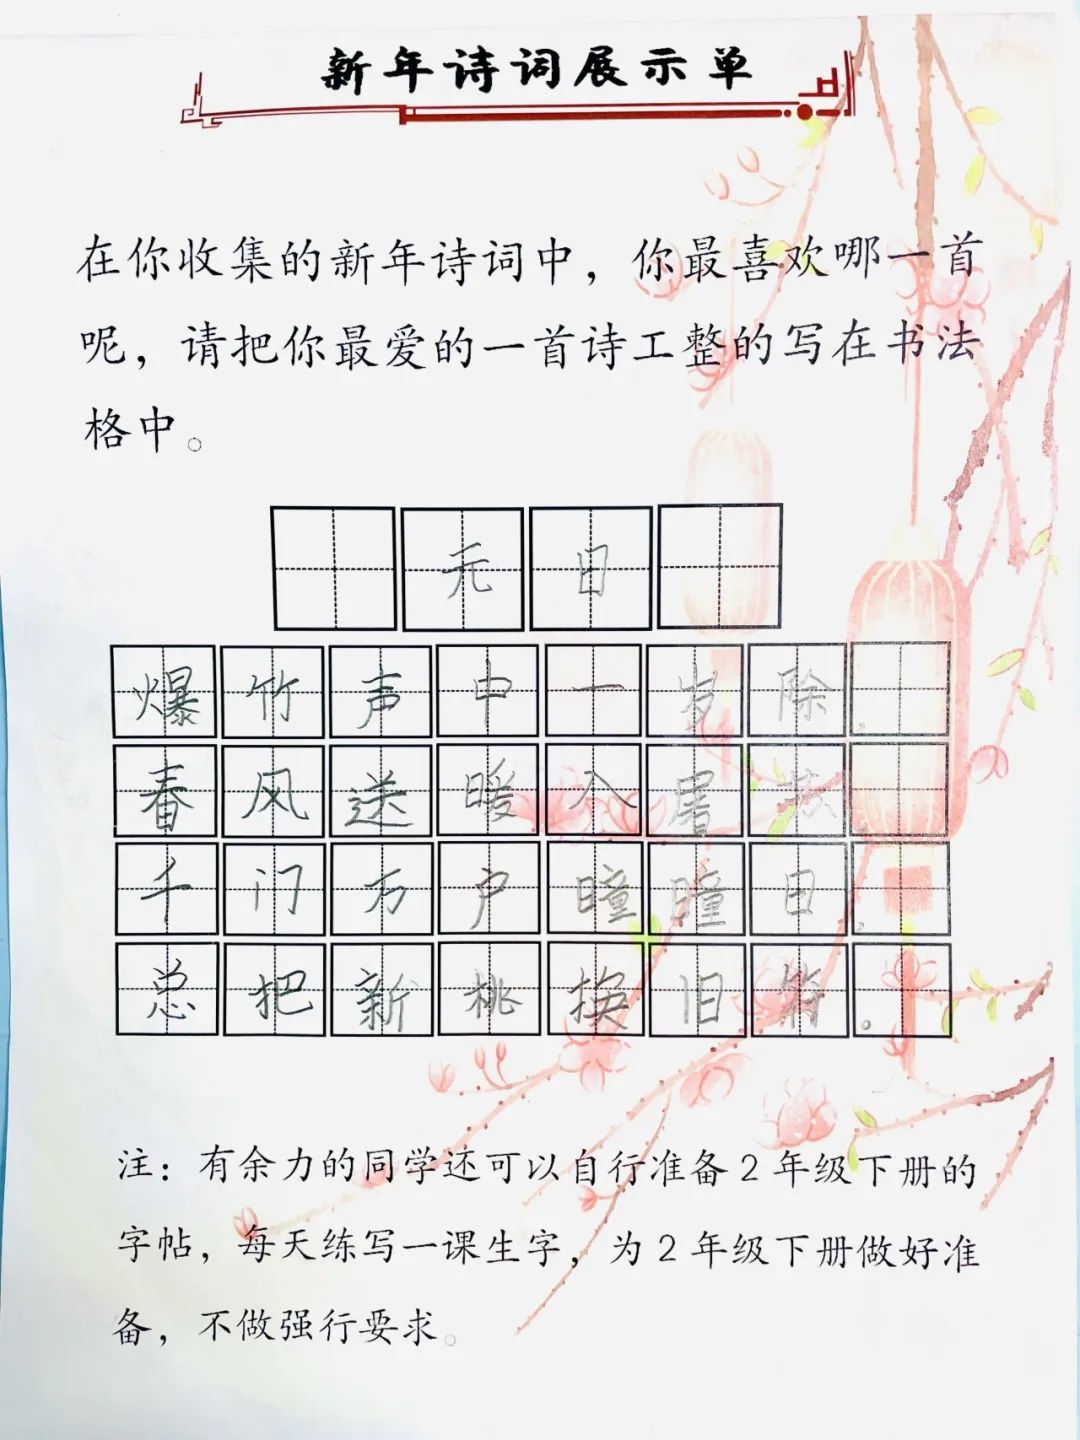 新年诗词展示单
在你收集的新年诗词中，你最喜欢哪一首
呢，请把你最爱的一首诗工整的写在书法
格中。
元日
爆竹声中一岁除，
春风送暖入屠苏
千门万户曈曈日，
总把新桃换旧符。
注：有余力的同学还可以自行准备2年级下册的
字帖，每天练写一课生字，为2年级下册做好准
备，不做强行要求。